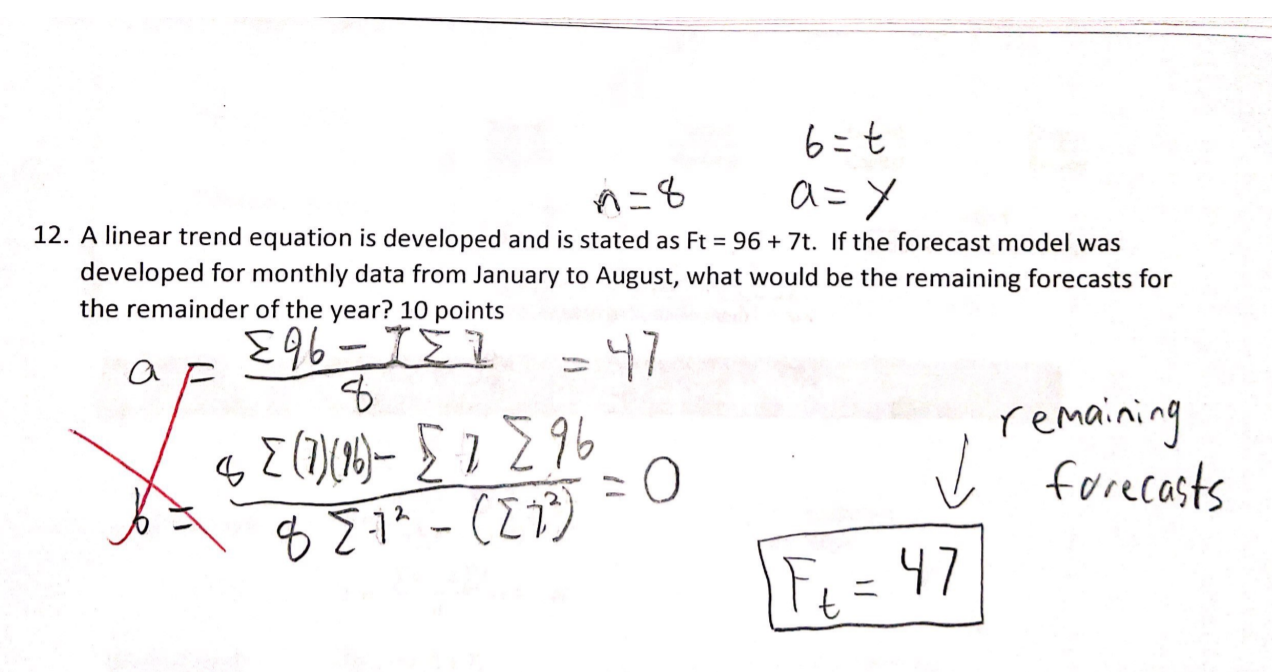 b = t
n = 8 a = y
12. A linear trend equation is developed and is stated as Ft = 96 + 7t. If the forecast model was
developed for monthly data from January to August, what would be the remaining forecasts for
the remainder of the year? 10 points
a = Σ96 - 7Σ7 / 8 = 47
b = 8 Σ(7)(96) - Σ7 Σ96 / 8 Σ7² - (Σ7²) = 0
remaining
forecasts
↓
Ft = 47